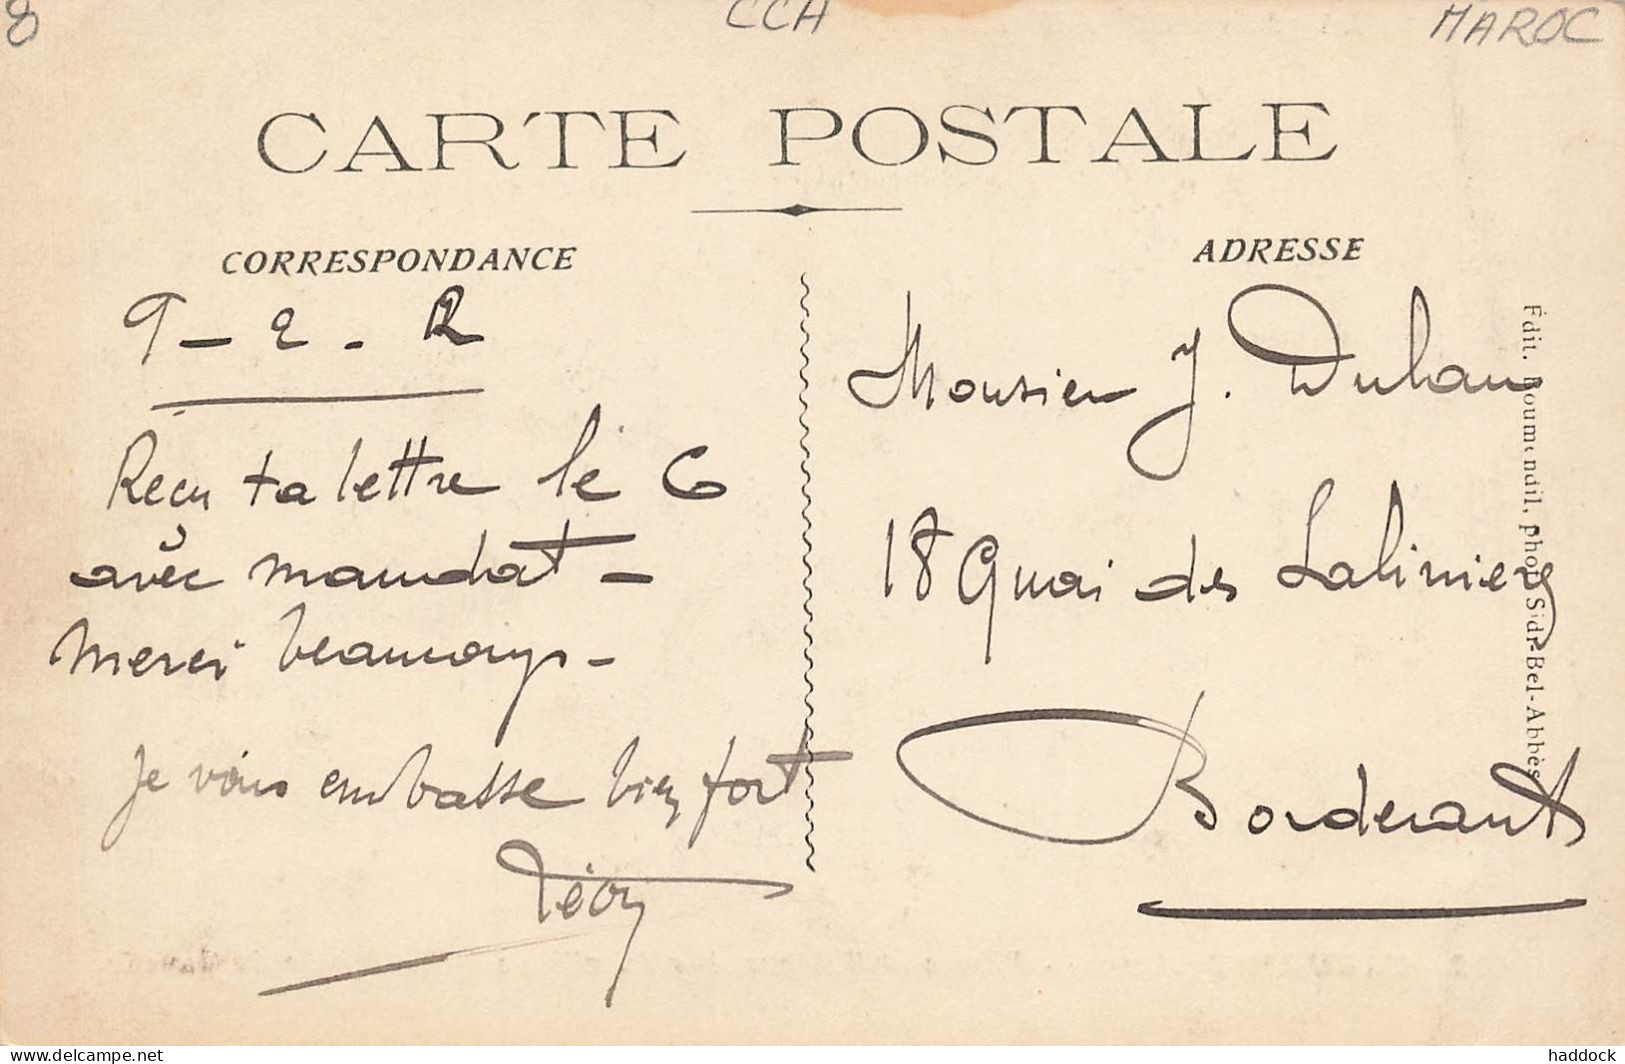 8
CCH
MAROC
CARTE POSTALE
CORRESPONDANCE
ADRESSE
9 - 2 -
Reçu ta lettre le 6
avec mandat -
merci beaucoup -
Je vous embrasse bien fort
Léon
Monsieur J. Dulau
18 Quai des Salinieres
Bordeaux
Édit. Boumendil, phot. Sidi-Bel-Abbès
delcampe.net
haddock